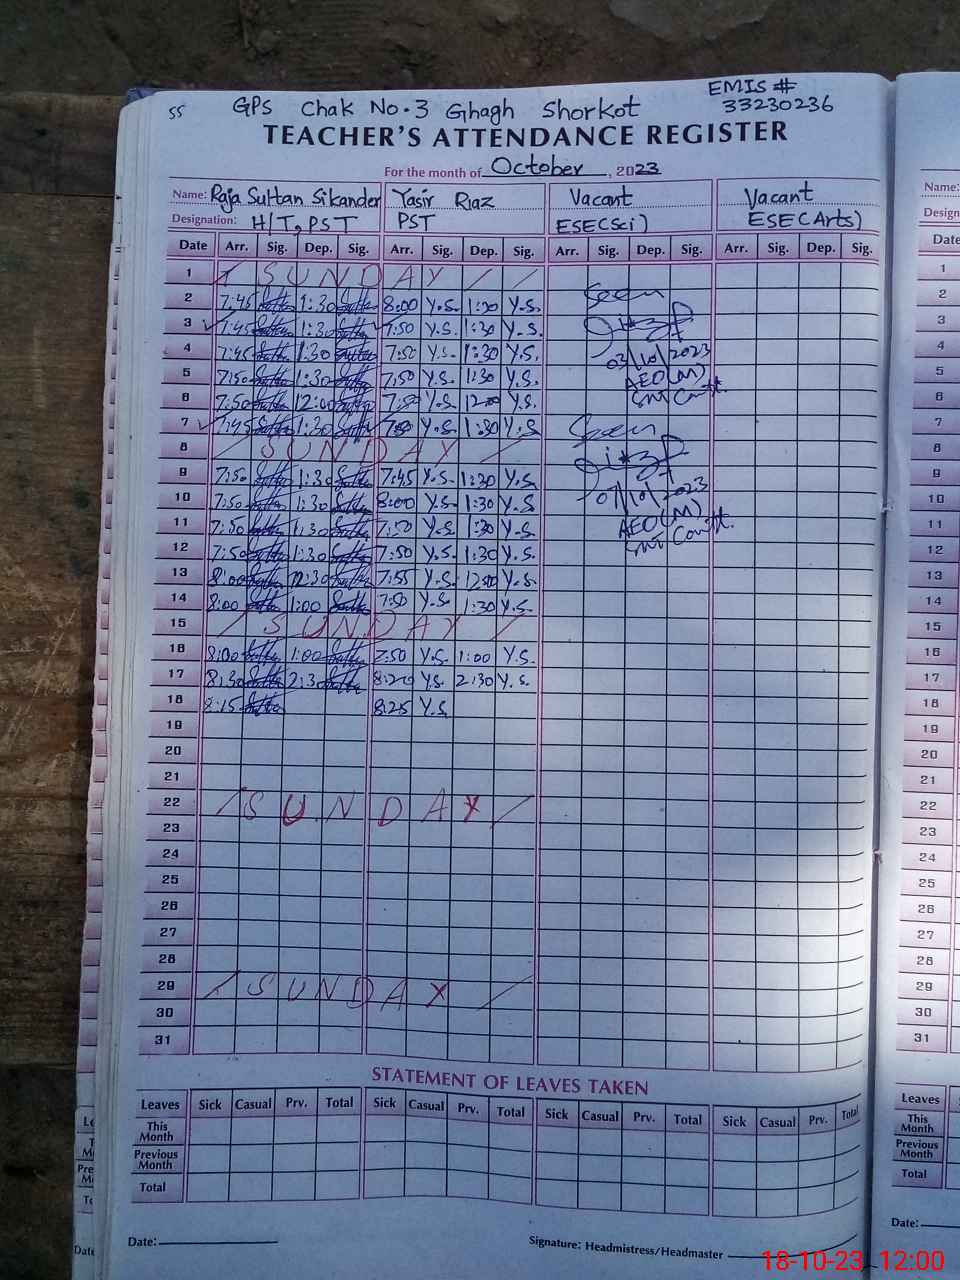 55 GPS Chak No. 3 Ghagh Shorkot EMIS # 33230236
TEACHER'S ATTENDANCE REGISTER
For the month of October, 2023
Name: Raja Sultan Sikander Yasir Riaz Vacant Vacant
Designation: H/T, PST PST ESE(Sci) ESE(Arts)
Date Arr. Sig. Dep. Sig. Arr. Sig. Dep. Sig. Arr. Sig. Dep. Sig. Arr. Sig. Dep. Sig.
1 / SUNDAY / /
2 7:45 1:30 8:00 Y.S. 1:30 Y.S. Seen
3 7:45 1:30 7:50 Y.S. 1:30 Y.S.
4 7:45 1:30 7:50 Y.S. 1:30 Y.S. 03/10/2023
5 7:50 1:30 7:50 Y.S. 1:30 Y.S. AEO(M)
6 7:50 12:00 7:50 Y.S. 12:00 Y.S.
7 7:45 1:30 7:50 Y.S. 1:30 Y.S. Seen
8 / SUNDAY /
9 7:50 1:30 7:45 Y.S. 1:30 Y.S.
10 7:50 1:30 8:00 Y.S. 1:30 Y.S. 07/10/2023
11 7:50 1:30 7:50 Y.S. 1:30 Y.S. AEO(M)
12 7:50 1:30 7:50 Y.S. 1:30 Y.S.
13 8:00 12:30 7:55 Y.S. 12:00 Y.S.
14 8:00 1:00 7:50 Y.S. 1:30 Y.S.
15 / SUNDAY /
16 8:00 1:00 7:50 Y.S. 1:00 Y.S.
17 8:30 2:30 8:20 Y.S. 2:30 Y.S.
18 8:15 8:25 Y.S.
19
20
21
22 / SUNDAY /
23
24
25
26
27
28
29 / SUNDAY /
30
31
STATEMENT OF LEAVES TAKEN
Leaves Sick Casual Prv. Total Sick Casual Prv. Total Sick Casual Prv. Total Sick Casual Prv. Total
This Month
Previous Month
Total
Date: Signature: Headmistress/Headmaster
Name:
Date
1
2
3
4
5
6
7
8
9
10
11
12
13
14
15
16
17
18
19
20
21
22
23
24
25
26
27
28
29
30
31
Leaves
This Month
Previous Month
Total
Date:
18-10-23 12:00